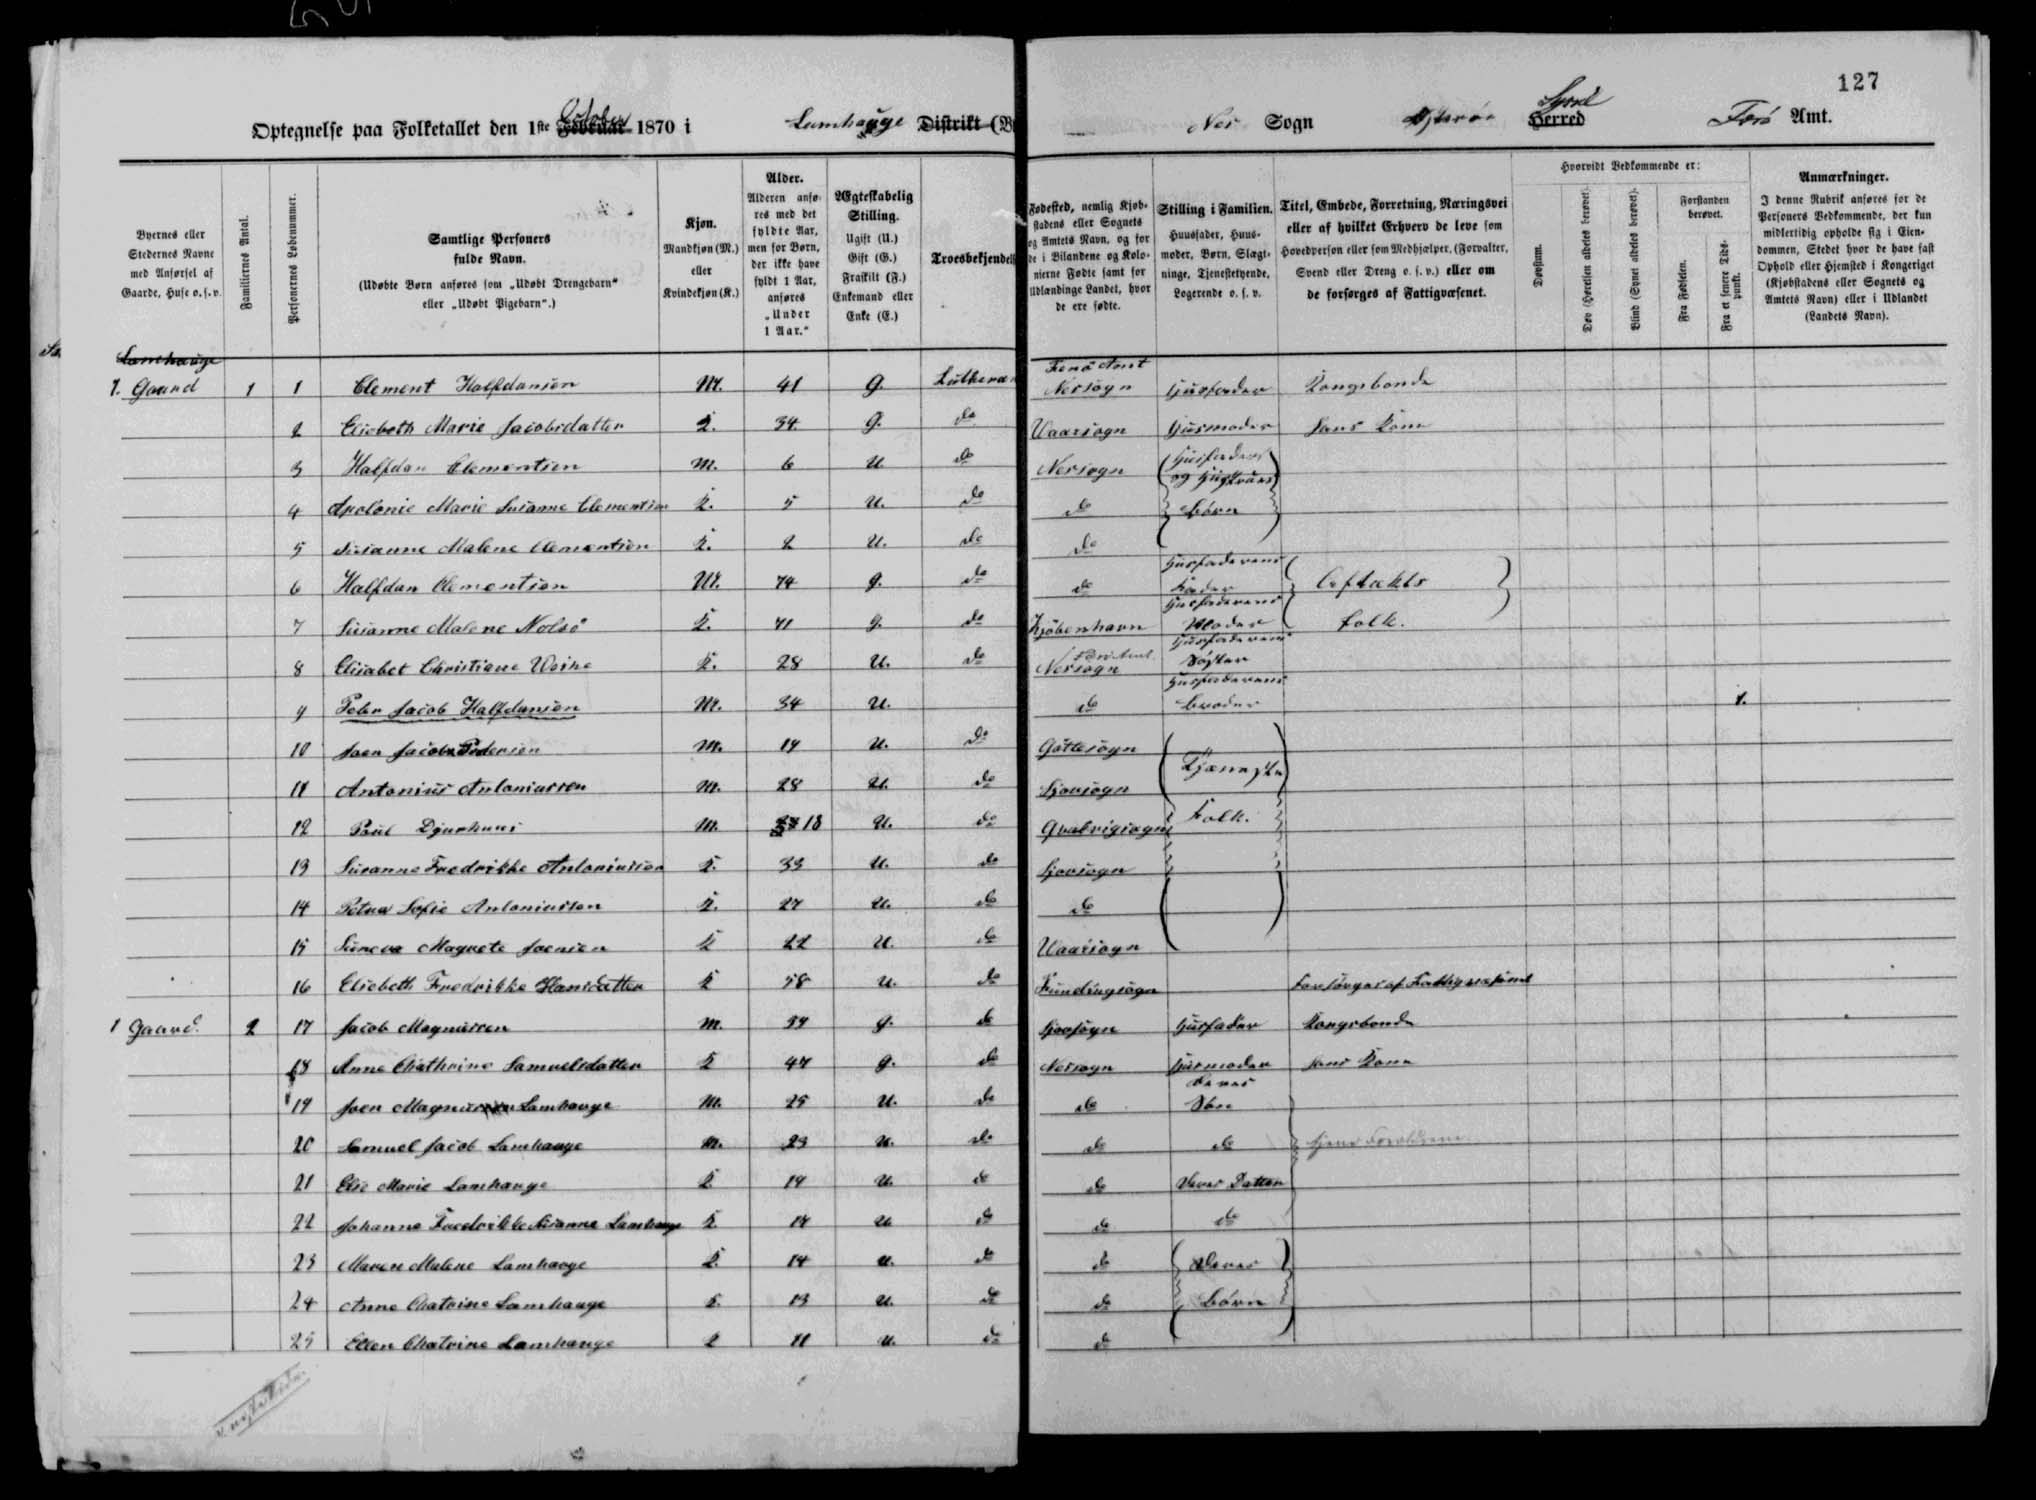 127
Optegnelse paa Folketallet den 1ste October Februar 1870 i Lamhauge Distrikt Nes Sogn Österöe Syssel Herred Færö Amt.
Byernes eller Stedernes Navne med Anførsel af Gaarde, Huse o. s. v.
Familiernes Antal.
Personernes Løbenummer.
Samtlige Personers fulde Navn.
(Udøbte Børn anføres som „Udøbt Drengebarn“ eller „Udøbt Pigebarn“.)
Kjøn.
Mandkjøn (M.) eller Kvindekjøn (K.)
Alder.
Alderen anføres med det fyldte Aar, men for Børn, der ikke have fyldt 1 Aar, anføres „Under 1 Aar.“
Ægteskabelig Stilling.
Ugift (U.) Gift (G.) Fraskilt (F.) Enkemand eller Enke (E.)
Troesbekjendels
Fødested, nemlig Kjøbstadens eller Sognets og Amtets Navn, og for de i Bilandene og Kolonierne Fødte samt for Udlændinge Landet, hvor de ere fødte.
Stilling i Familien.
Huusfader, Huusmoder, Børn, Slægtninge, Tjenestetyende, Logerende o. s. v.
Titel, Embede, Forretning, Næringsvei eller af hvilket Erhverv de leve som Hovedperson eller som Medhjælper, (Forvalter, Svend eller Dreng o. s. v.) eller om de forsørges af Fattigvæsenet.
Hvorvidt Vedkommende er:
Døvstum.
Døv (Hørelsen aldeles berøvet).
Blind (Synet aldeles berøvet).
Forstanden berøvet.
Fra Fødselen.
Fra et senere Tidspunkt.
Anmærkninger.
I denne Rubrik anføres for de Personers Vedkommende, der kun midlertidig opholde sig i Eiendommen, Stedet hvor de have fast Ophold eller Hjemsted i Kongeriget (Kjøbstadens eller Sognets og Amtets Navn) eller i Udlandet (Landets Navn).
Lamhauge
Færö Amt
1. Gaard 1 1 Clement Halfdansen M. 41 G. Lutheran Nessogn Husfader Kongsbonde
2 Elisbeth Marie Jacobsdatter K. 34 G. do Uaarsogn Husmoder Hans Kone
3 Halfdan Clementsen M. 6 U. do Nessogn Husfaders og Hustrues
4 Apolonie Marie Susanne Clementsen K. 5 U. do do Börn
5 Susanne Malene Clementsen K. 2 U. do do
6 Halfdan Clementsen M. 74 G. do do Husfaderens Fader Aftækts
7 Susanne Malene Nolsö K. 71 G. do Kjöbenhavn Husfaderens Moder folk.
8 Elisabet Christiane Weihe K. 28 U. do Færö Amt Nessogn Husfaderens Söster
9 Peter Jacob Halfdansen M. 34 U. do Husfaderens broder 1.
10 Joen Jacob Pedersen M. 19 U. do Göttesogn Tjæneste
11 Antonius Antoniussen M. 28 U. do Sjovsogn
12 Poul Djurhuus M. 18 U. do Qvalvigsogn Folk.
13 Susanne Fredrikke Antoniussen K. 33 U. do Sjovsogn
14 Petra Sofie Antoniussen K. 27 U. do do
15 Suneva Magrete Joensen K 22 U. do Uaarsogn
16 Elsebeth Fredrikke Hansdatter K 58 U. do Fundingsogn Forsörges af Fattigvæsenet
1 Gaard. 2 17 Jacob Magnussen M. 59 G. do Sjovsogn Husfader Kongsbonde
18 Anne Chathrine Samuelsdatter K 47 G. do Nessogn Husmoder Hans Kone
19 Joen Magnus Lamhauge M. 25 U. do do Deres Sön
20 Samuel Jacob Lamhauge M. 23 U. do do do tjene Forældrene
21 Else Marie Lamhauge K 19 U. do do Deres Datter
22 Johanne Fredrikke Susanne Lamhauge K. 17 U. do do do
23 Maren Malene Lamhauge K. 14 U. do do Deres
24 Anne Chatrine Lamhauge K. 13 U. do do Börn
25 Ellen Chatrine Lamhauge K 11 U. do do